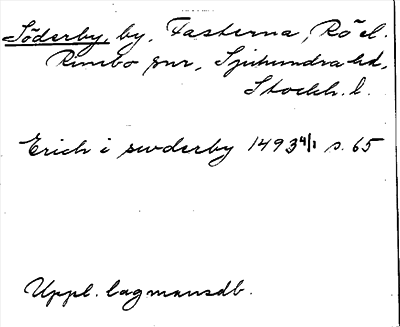 Söderby, by, Fasterna, Rö sl.
Rimbo snr, Sjuhundra hd,
Stockh. l.
Erich i swderby 1493 4/1 s. 65
Uppl. lagmansdb.